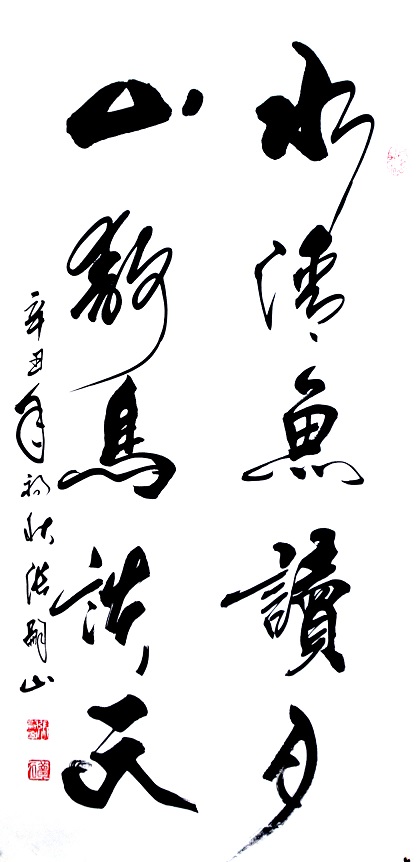 水清魚讀月
山靜鳥談天
辛丑年初秋張嗣山